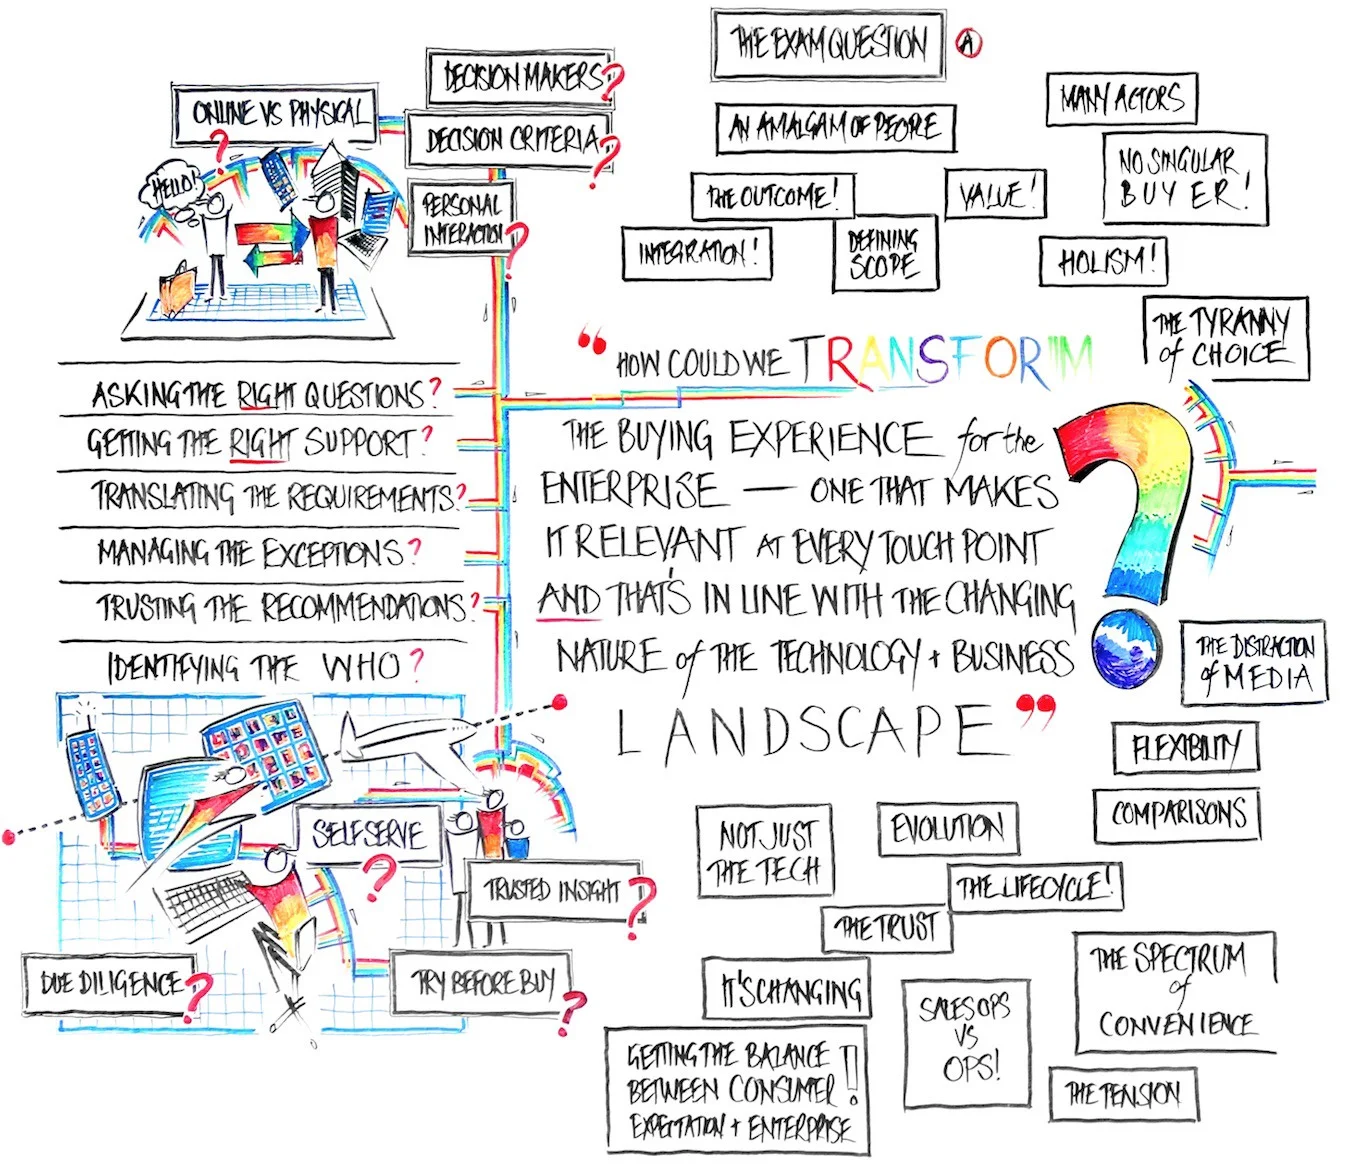 THE EXAM QUESTION
A
DECISION MAKERS?
ONLINE VS PHYSICAL
?
DECISION CRITERIA?
HELLO!
PERSONAL
INTERACTION?
AN AMALGAM OF PEOPLE
MANY ACTORS
NO SINGULAR
BUYER!
THE OUTCOME!
VALUE!
INTEGRATION!
DEFINING
SCOPE
HOLISM!
THE TYRANNY
of CHOICE
ASKING THE RIGHT QUESTIONS?
GETTING THE RIGHT SUPPORT?
TRANSLATING THE REQUIREMENTS?
MANAGING THE EXCEPTIONS?
TRUSTING THE RECOMMENDATIONS?
IDENTIFYING THE WHO?
“HOW COULD WE TRANSFORM
THE BUYING EXPERIENCE for the
ENTERPRISE — ONE THAT MAKES
IT RELEVANT AT EVERY TOUCH POINT
AND THAT'S IN LINE WITH THE CHANGING
NATURE of THE TECHNOLOGY + BUSINESS
LANDSCAPE”
?
THE DISTRACTION
of MEDIA
FLEXIBILITY
COMPARISONS
SELF SERVE
?
TRUSTED INSIGHT?
DUE DILIGENCE?
TRY BEFORE BUY?
NOT JUST
THE TECH
EVOLUTION
THE LIFECYCLE!
THE TRUST
IT'S CHANGING
SALES OPS
VS
OPS!
THE SPECTRUM
of
CONVENIENCE
GETTING THE BALANCE
BETWEEN CONSUMER!!
EXPECTATION + ENTERPRISE
THE TENSION